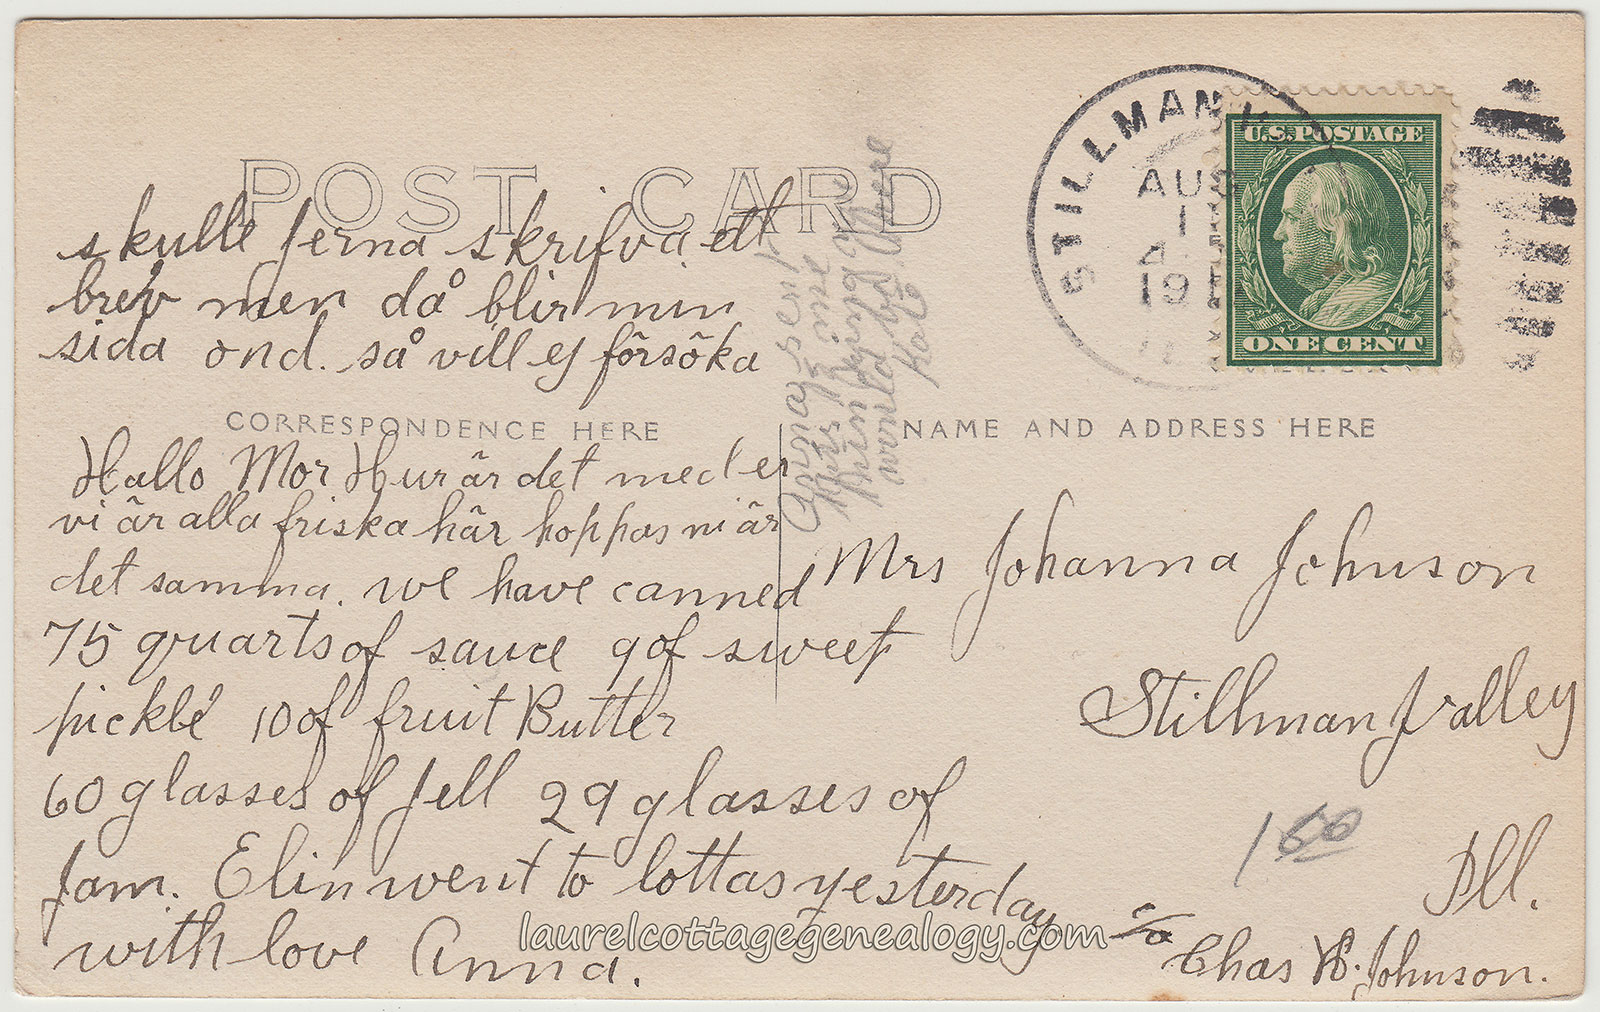 POST CARD
skulle jerna skrifva ett
brev men då blir min
sida ond. så vill ej försöka
CORRESPONDENCE HERE
Hallo Mor Hur är det med er
vi är alla friska här hoppas ni är
det samma. we have canned
75 quarts of sauce 9 of sweet
pickle 10 of fruit Butter
60 glasses of Jell 29 glasses of
Jam. Elin went to lottas yesterday
with love Anna.
Anna sent
this
STILLMAN
AUG
1
4
191
U.S. POSTAGE
ONE CENT
NAME AND ADDRESS HERE
Mrs Johanna Johnson
Stillman Valley
Ill.
150
c/o Chas A. Johnson.
laurelcottagegenealogy.com